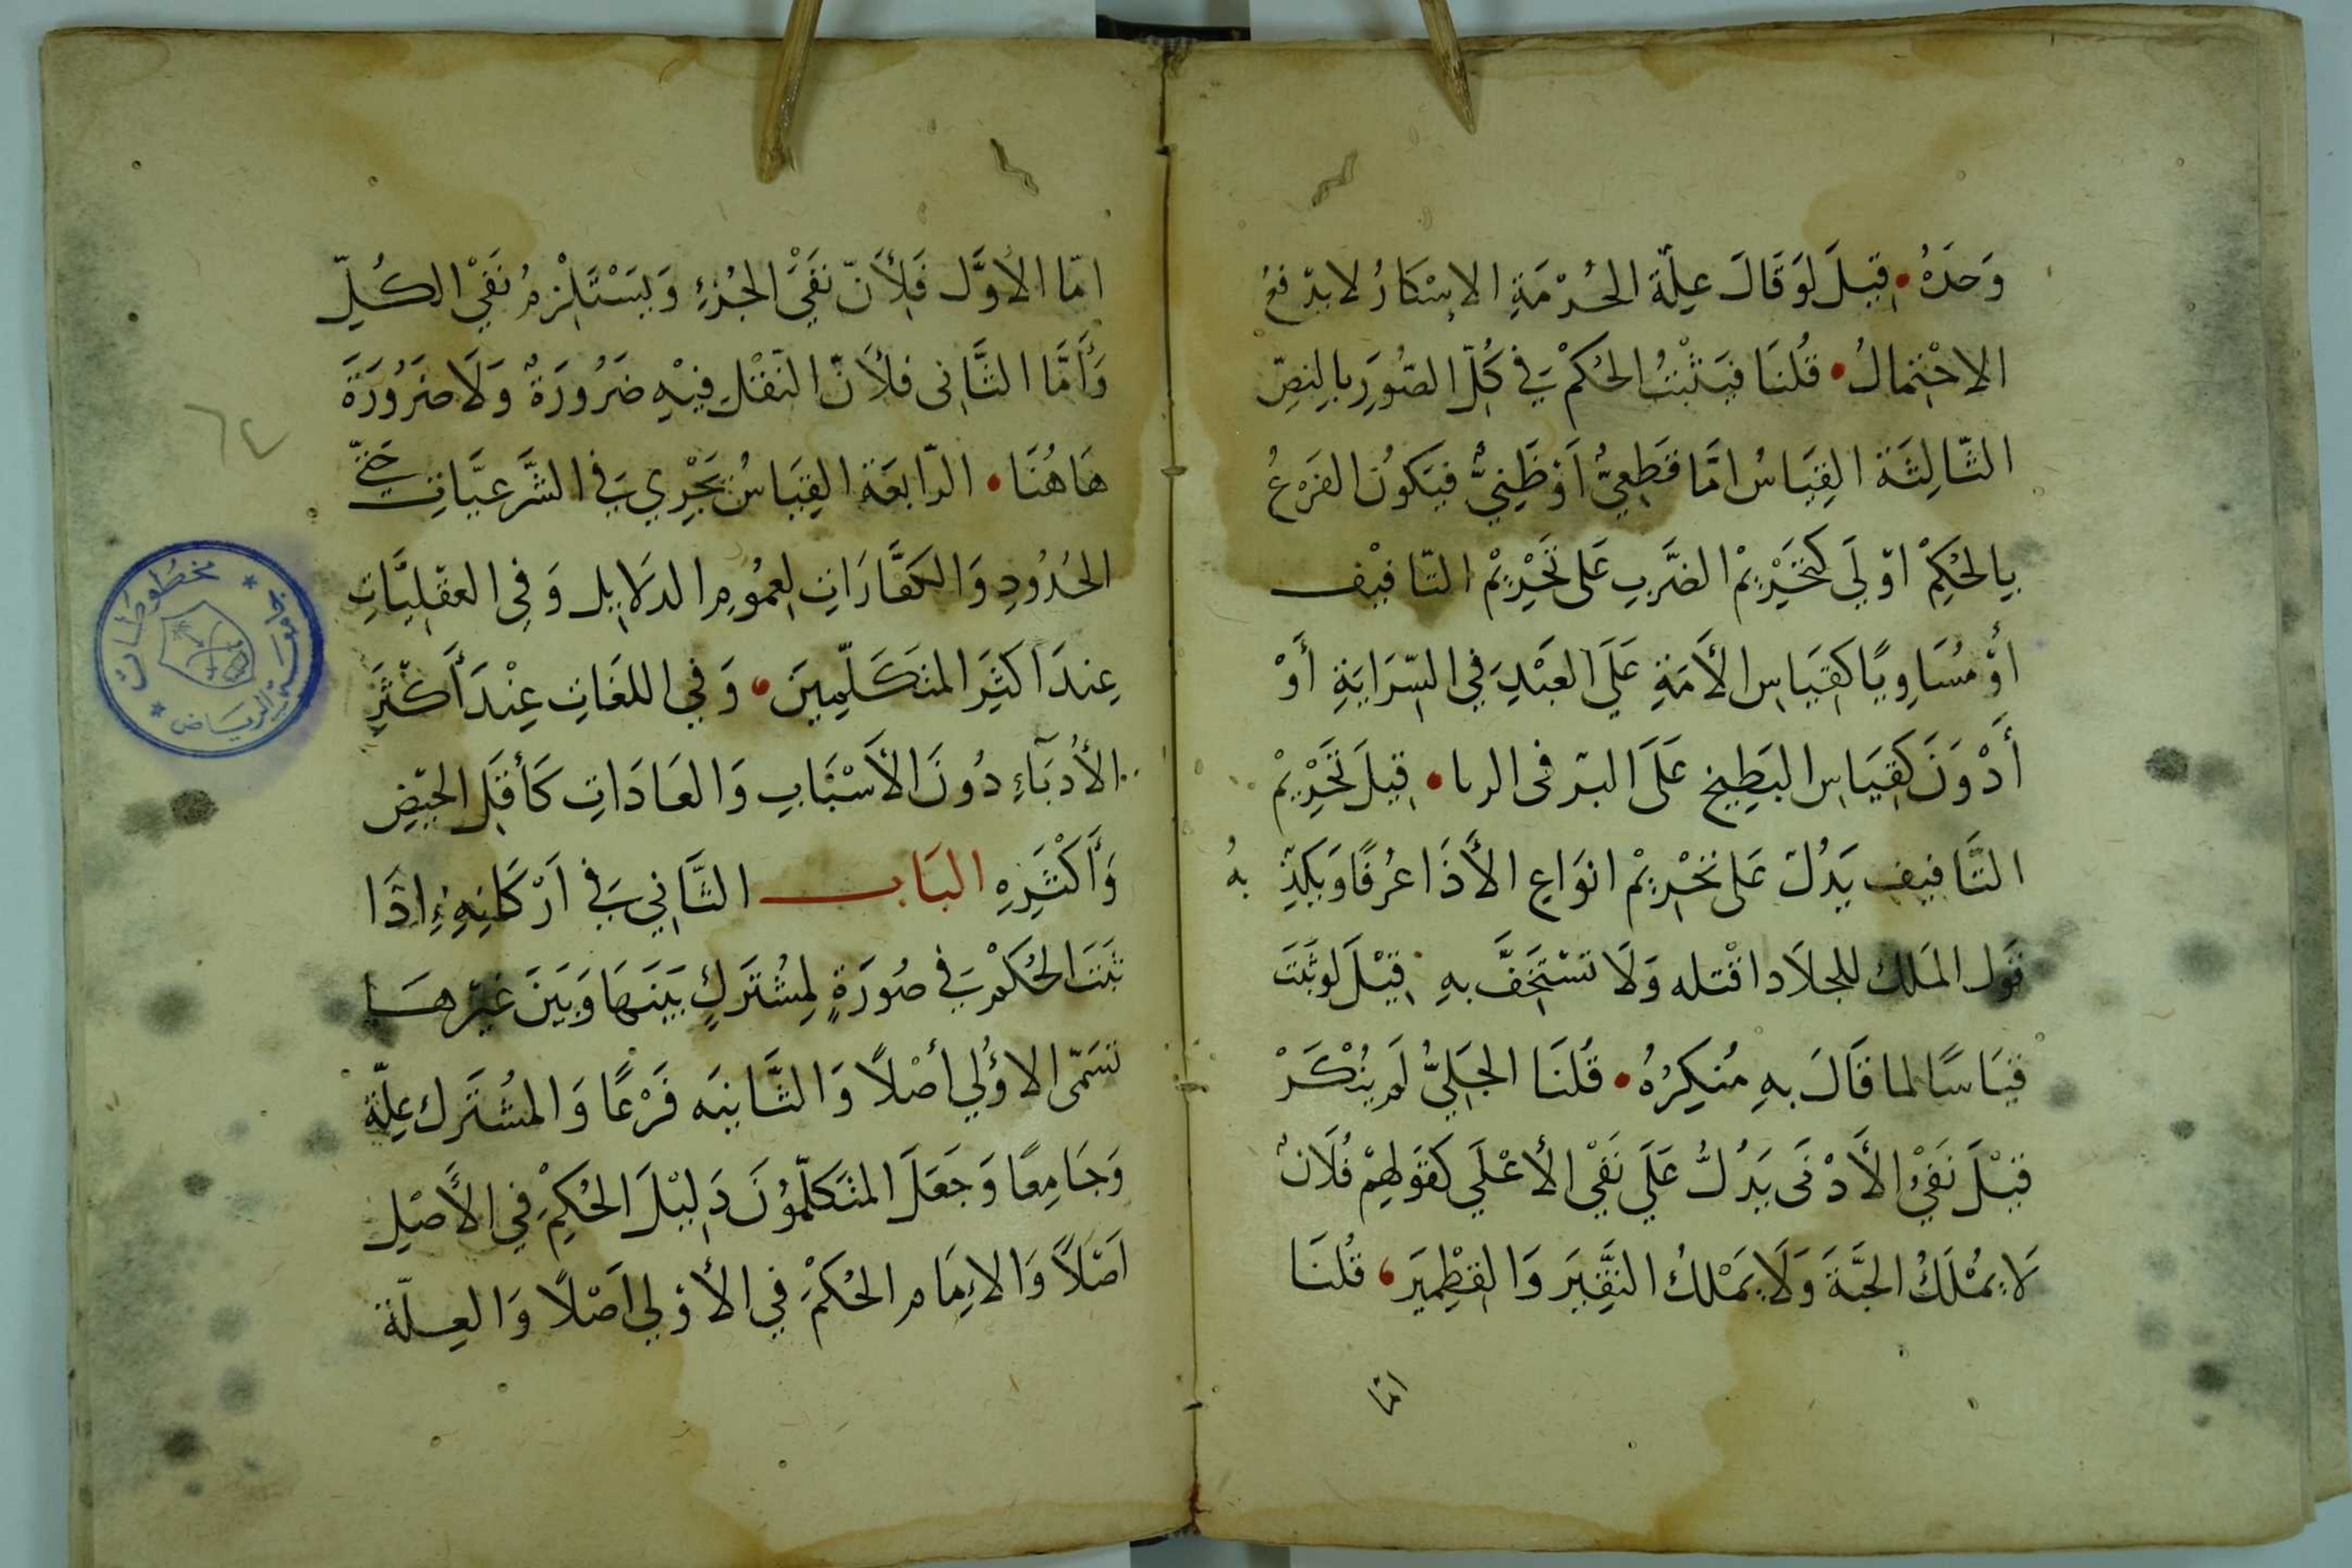 وَحدَهُ • قِيلَ لَوقَالَ عِلّة الحُرْمَةِ الاِسْكَارُ لاندَفعُ
الاِحْتِمالُ • قُلنَا فيَثْبُتُ الحُكمْ فِي كُلِّ الصُّوَرِ بالِنصِّ
الثّالِثَة القِيَاسُ امَّا قَطِعيٌّ اَوْظَنِيٌّ فيَكونُ الفَرعُ
بِالحُكِمْ اوْلَي كتَحْرِيْمْ الضَّربِ عَلى تَحْرِيْمْ التّافيْف
أوْ مُسَاوِيًا كَقِيَاسِ الأَمَةِ عَلَي العَبْدِ فِي السِّرَايَةِ أَوْ
أَدْوَنَ كَقِيَاسِ البَطِيخِ عَلَى البرّ فى الربا • قِيلَ تَحَرِيْمْ
التَّافيفِ يَدُلّ عَلى تحْرِيْمْ انوَاعِ الأَذَا عُرفًا وَيكذِّبهُ
قَول المَلك للجلاَد اقْتله وَلَا تسْتخَفَّ بهِ قِيْلَ لوثَبَتَ
قيَاسًا لما قَالَ بهِ مُنكِرُهُ • قُلنَا الجَلِيُّ لَم يُنْكَرْ
قيْلَ نَفيُْ الأَدْنَى يَدُلُّ عَلَي نَفْيِ الأعْلَي كقَولهِمْ فُلَانٌ
لَايمْلَكُ الحَبَّةَ وَلَايَمْلكُ النَّقِيَر وَالقِطْمِيَر • قُلنَا
امّا
امّا الاوَّل فَلِأَنّ نفَيْ الجُزءِ وَيسْتَلْزِمُ نَفيْ الكُلِّ
وَأَمَّا الثَّانِى فلأَنّ النَقْل فِيْهِ ضَرُورَةٌ وَلَا ضَرُورَةَ
هَاهُنَا • الرّابعَة القِيَاسُ يَجْرِي فِي الشَّرعيَّاتِ حَتّي
الحُدُودِ وَالكَفَّارَاتِ لِعمُومِ الدلَايِل وَفِي العَقْلِيَّاتِ
عِندَ اَكثَرِ المتَكَلِّمِينَ • وَفِي اللغَاتِ عِنْدَ أَكثَرِ
الأُدبَآءِ دُونَ الأَسْبَابِ وَالعَادَاتِ كَأَقلِ الحَيضِ
وَأَكثَرِهِ البَاب الثَّانِي فِي اَرْكَانِهِ إذَا
ثبَتَ الحُكمْ فِي صُورَةٍ لِمُشْتَركٍ بَيَنهَا وَبَينَ غَيرهَا
تسَمّى الاوُلي أصْلاً وَالثَّانيَه فَرْعًا وَالمُشتَرك عِلّةً
وَجَامِعًا وَجَعَلَ المتكَلّمُونَ دَلِيْلَ الحُكِمْ فِي الأَصْلِ
اَصْلاً وَالاءِمَام الحُكمْ فِي الأوْلي اَصْلاً وَالعِلّة
٦٤
جامعة الرياض
مخطوطات